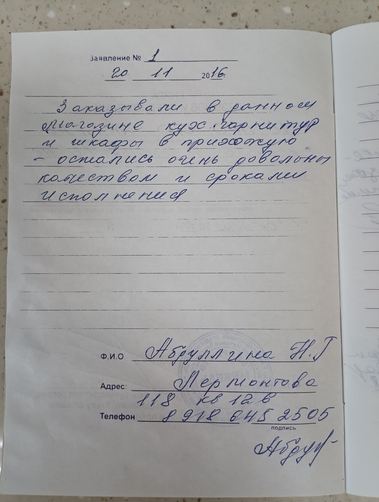 Заявление № 1
20 11 2016
Заказывали в данном
магазине кух. гарнитур
и шкафы в прихожую
– остались очень довольны
качеством и сроками
исполнения
Ф.И.О Абдуллина Н.Г
Адрес: Лермонтова
118 кв 12 в
Телефон 8 918 645 2505
подпись